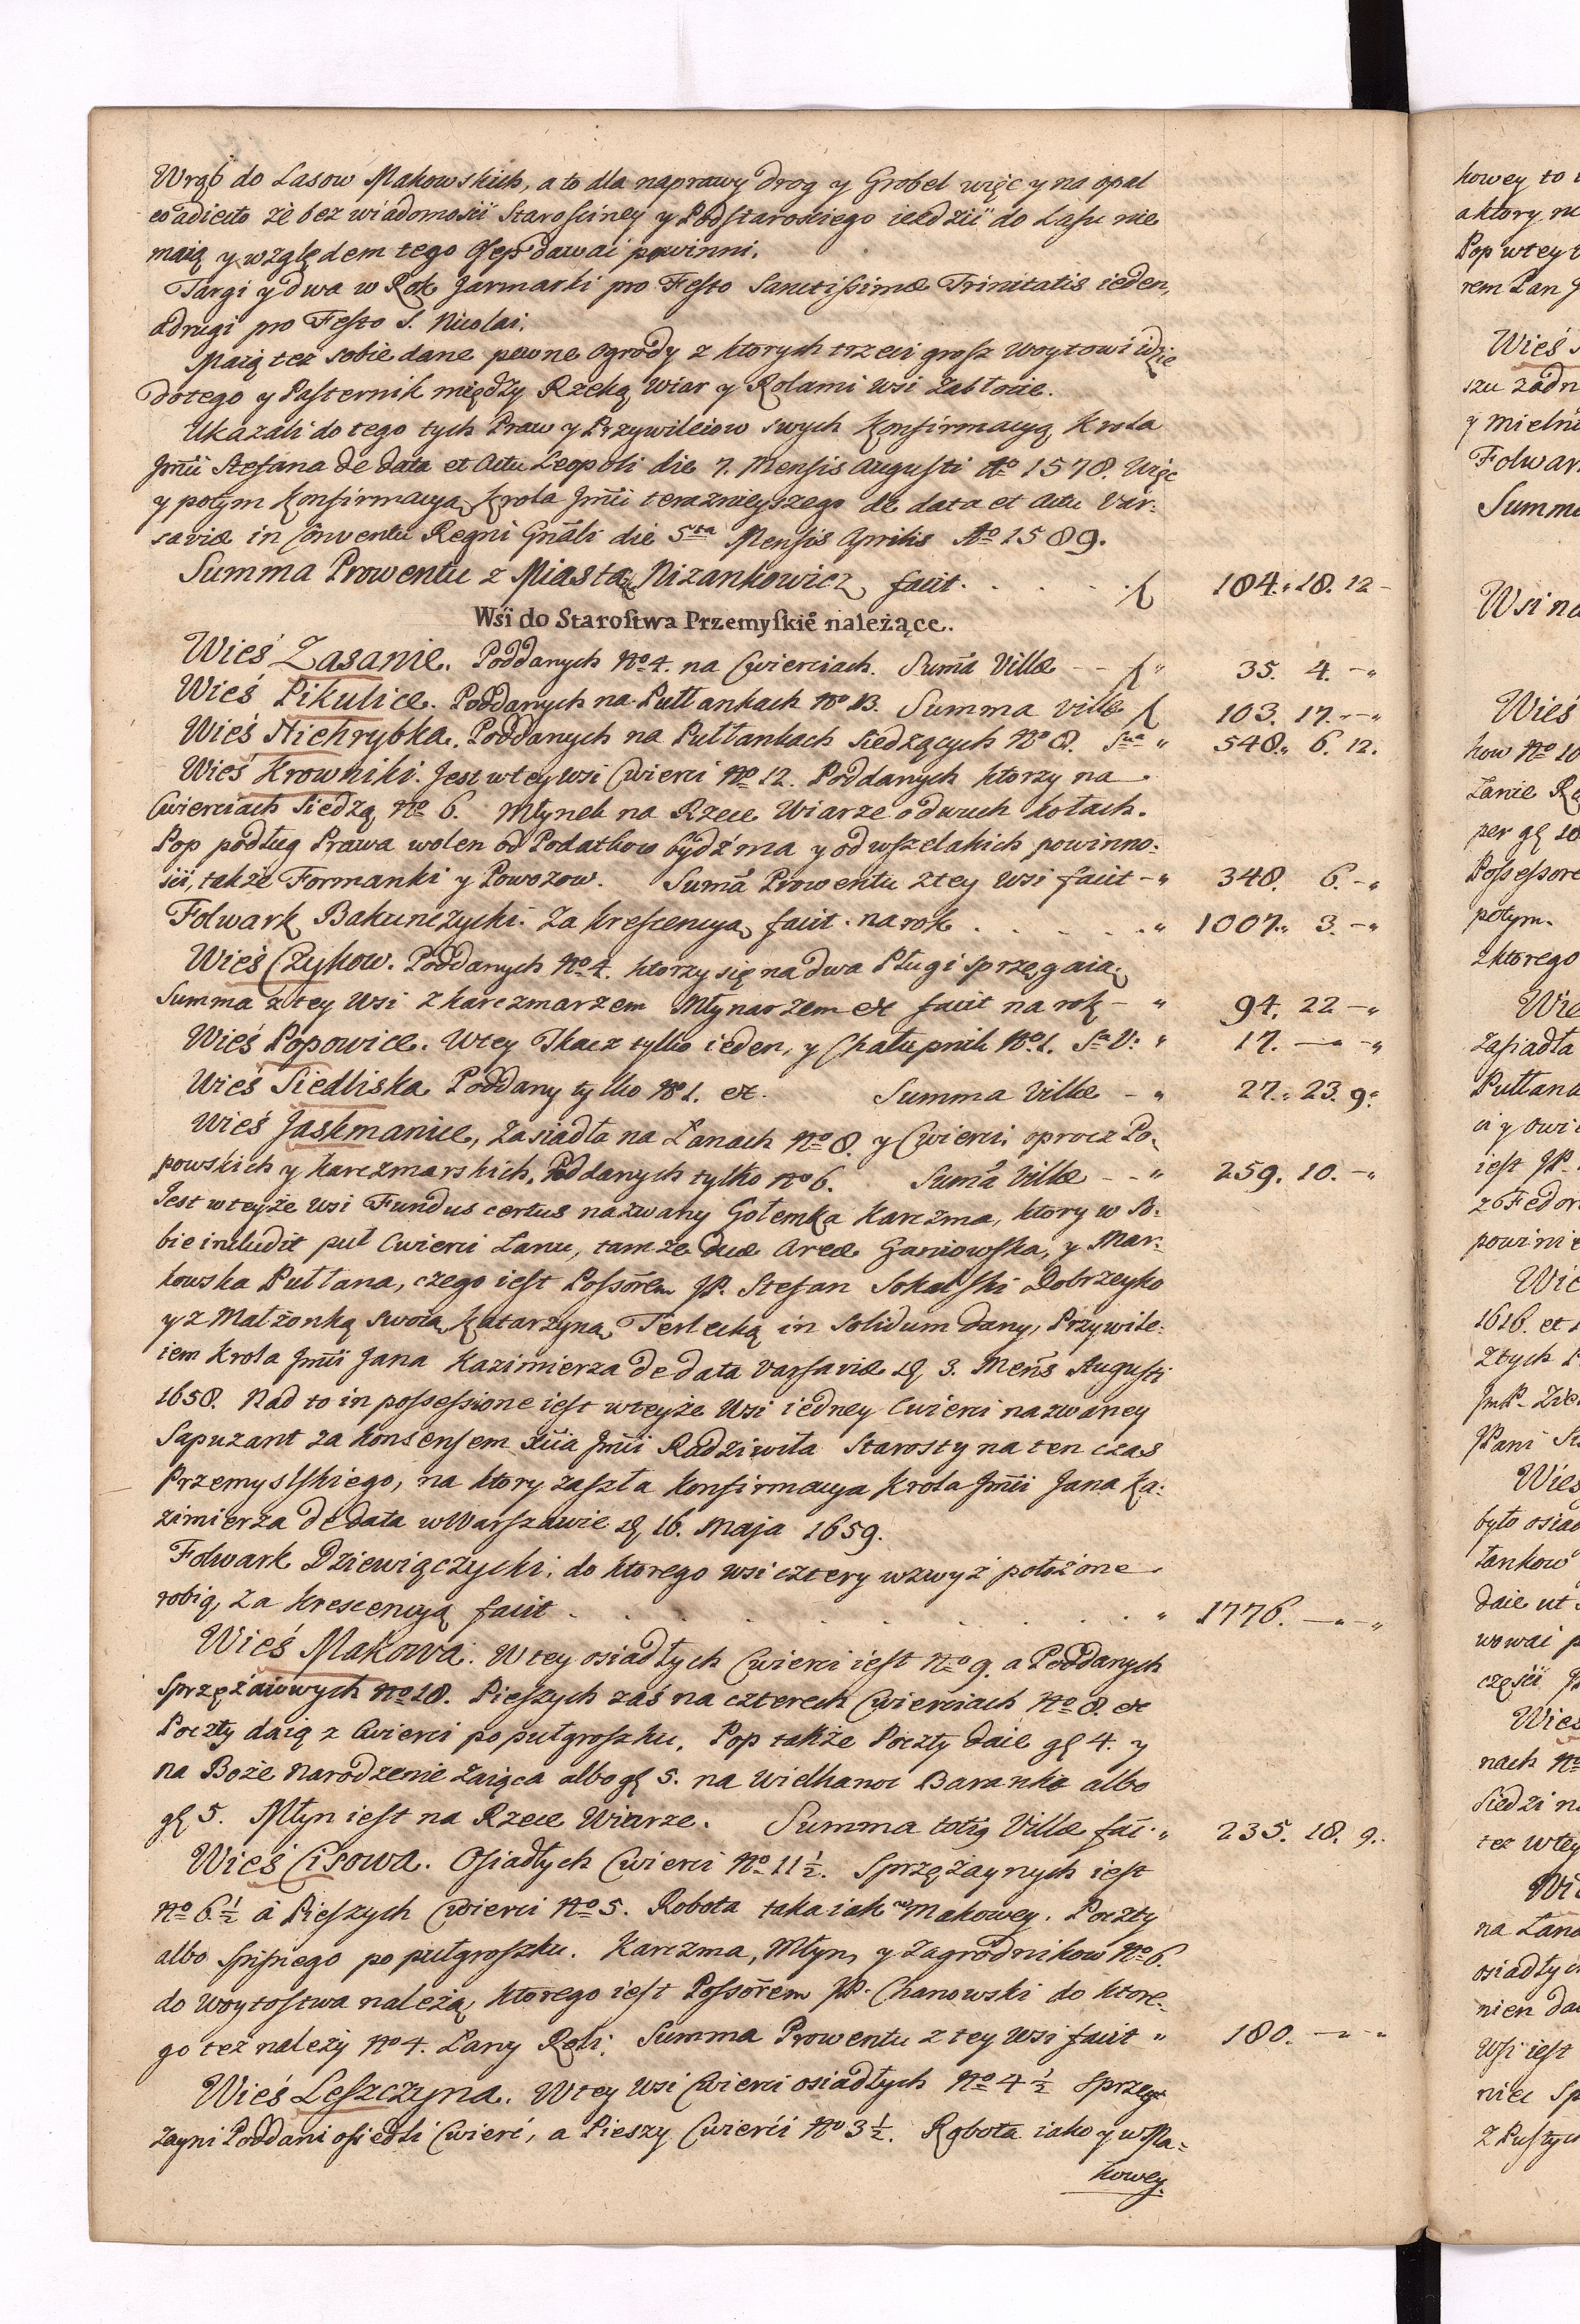 Wrąb do Lasow Makowskich, a to dla naprawy drog y Grobel więc y na opał
eo adiecto że bez wiadomości Starościney y Podstarościego ieździć do Lasu nie
maią y względem tego Osep dawać powinni.
Targi y dwa w Rok Jarmarki pro Festo Sanctissimæ Trinitatis ieden,
a drugi pro Festo S. Nicolai.
Maią też sobie dane pewne Ogrody z ktorych trzeci grosz Woytowi idzie
do tego y Pasternik między Rzeką Wiar y Rolami wsi Zabłocie.
Ukazali do tego tych Praw y Przywileiow swych Konfirmacyą Krola
Jmci Stefana de data et Actu Leopoli die 7. Mensis Augusti Ao 1578. Więc
y potym Konfirmacyą Krola Jmci teraznieyszego de data et Actu Var:
saviæ in Conventu Regni Gnãli die 5ta Mensis Aprilis Ao 1589.
Summa Prowentu z Miasta Nizankowicz facit . . . . . 184. 18. 12 -
Wśi do Starostwa Przemyskie należące..
Wieś Zasanie. Poddanych No 4. na Cwierciach. Sum̃a Villæ - - 35. 4. -
Wieś Pikulice. Poddanych na Pułłankach No 13. Summa Villæ 103. 17. -
Wieś Niehrybka. Poddanych na Pułłankach siedzących No 8. Sma 548. 6. 12.
Wieś Krowniki. Jest w tey wsi Cwierci No 12. Poddanych ktorzy na
Cwierciach siedzą No 6. Młynek na Rzece Wiarze o dwuch kołach.
Pop podług Prawa wolen od Podatkow bydź ma y od wszelakich powinno:
ści, także Formanki y Powozow. Sum̃a Prowentu z tey Wsi facit - 348. 6. -
Folwark Bakunczycki. Za krescencyą facit na rok . . . . . . 1007. 3. -
Wieś Czyków. Poddanych No 4. ktorzy się na dwa Pługi sprzęgaią.
Summa z tey Wsi z karczmarzem Młynarzem etc facit na rok - 94. 22 -
Wieś Popowice. W tey Tkacz tylko ieden, y Chałupnik No 1. Sa V: 17. - -
Wieś Siedliska Poddany tylko No 1. etc. Summa Villæ - 27. 23. 9.
Wieś Jaskmanice, Zasiadła na Łanach No 8. y Cwierci oprocz Po:
powskich y karczmarskich, Poddanych tylko No 6. Sum̃a Villæ - - 259. 10. -
Jest w teyże wsi Fundus certus nazwany Gołemka karczma, ktory w So:
bie includit puł Cwierci Łanu, tamże duæ Areæ Ganiowska, y Mar:
kowska Pułłana, czego iest Possõrem JP. Stefan Sokalski Dobrzeyko
y z Małżonką swoią Katarzyną Terlecką in solidum dany, Przywile:
iem Krola Jmci Jana Kazimierza de data Varsaviæ d. 3. Meñs Augusti
1658. Nad to in possessione iest w teyże Wsi iedney Cwierci nazwaney
Sapuzant za konsensem Xcia Jmci Radziwiła Starosty na ten czas
Przemyslskiego, na ktory zaszła Konfirmacya Krola Jmci Jana Ka:
zimierza de data w Warszawie d. 16. Maja 1659.
Folwark Dziewiączycki; do ktorego wsi cztery wzwyż położone
robią, za krescencyą facit . . . . . . . . . . . . 1776. - -
Wieś Makowa. W tey osiadłych Cwierci iest No 9. a Poddanych
sprzężaiowych No 18. Pieszych zaś na czterech Cwierciach No 8. etc
Poczty daią z Cwierci po pułgroszku. Pop także Poczty daie gr 4. y
na Boże Narodzenie Zaiąca albo gr 5. na Wielkanoc Baranka albo
gr 5. Młyn iest na Rzece Wiarze. Summa totiq Villæ fac. 235. 18. 9.
Wieś Cisowa. Osiadłych Cwierci No 11 ½. Sprzężaynych iest
No 6 ½ a Pieszych Cwierci No 5. Robota taka iak w Makowey. Poczty
albo Spisnego po pułgroszku. Karczma, Młyn, y Zagrodnikow No 6.
do Woytostwa należą, ktorego iest Possõrem JP. Chanowski do ktore:
go też należy No 4. Łany Roli. Summa Prowentu z tey Wsi facit 180. - -
Wieś Leszczyna. W tey Wsi Cwierci osiadłych No 4 ½ sprzę
żayni Poddani osiedli Cwierć, a Pieszy Cwierci No 3 ½. Robota iako y w Ma:
kowey.